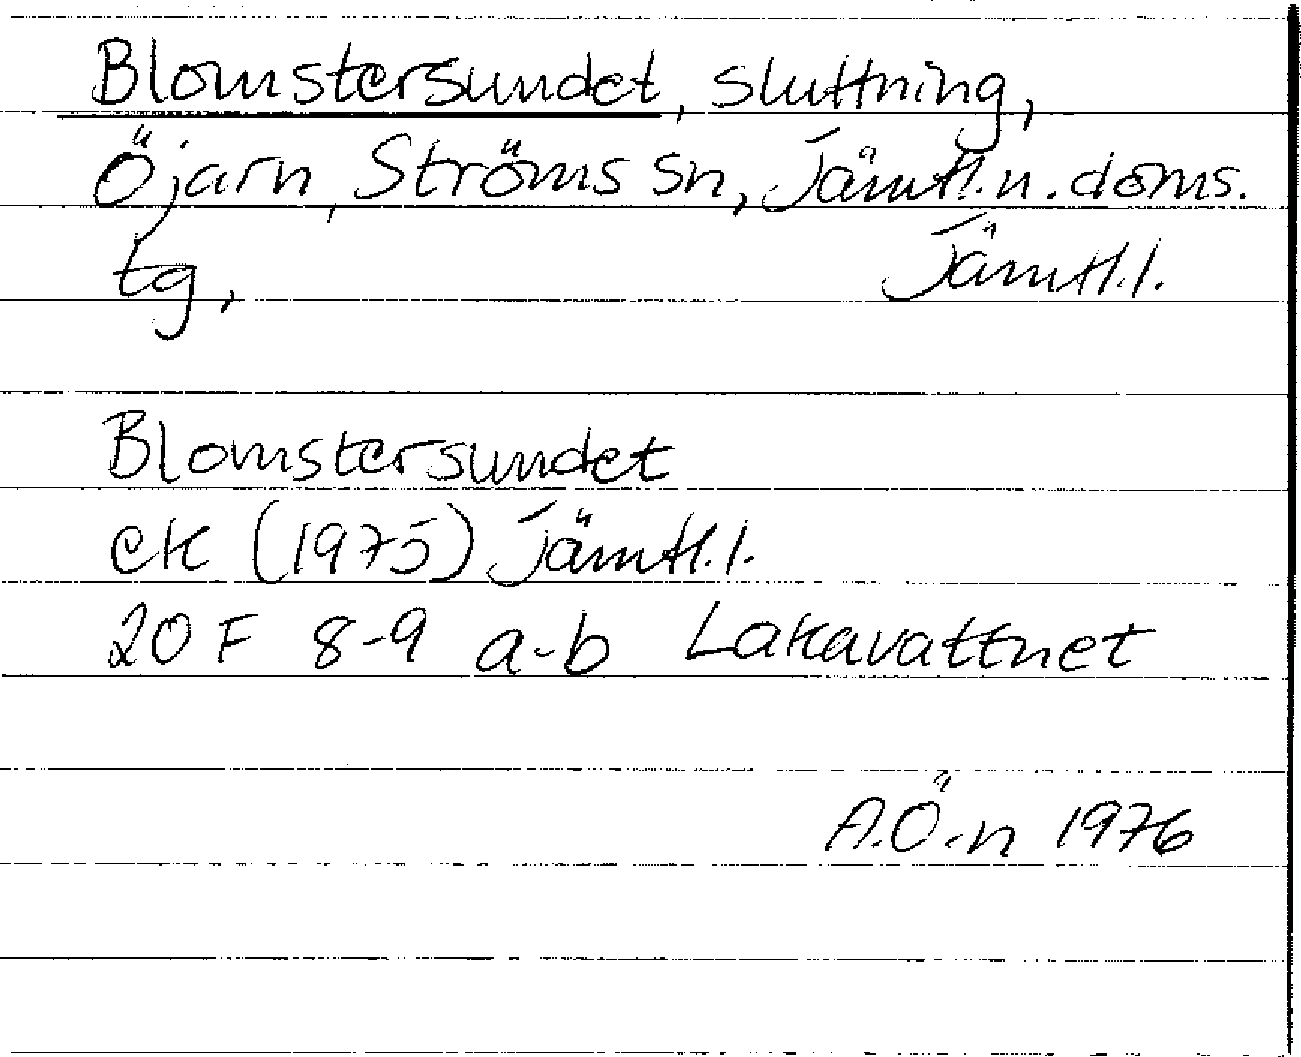 Blomstersundet, sluttning,
Öjarn, Ströms sn, Jämtl. n. doms.
tg, Jämtl. l.
Blomstersundet
ek (1975) Jämtl. l.
20 F 8-9 a-b Lakavattnet
A.Ö-n 1976